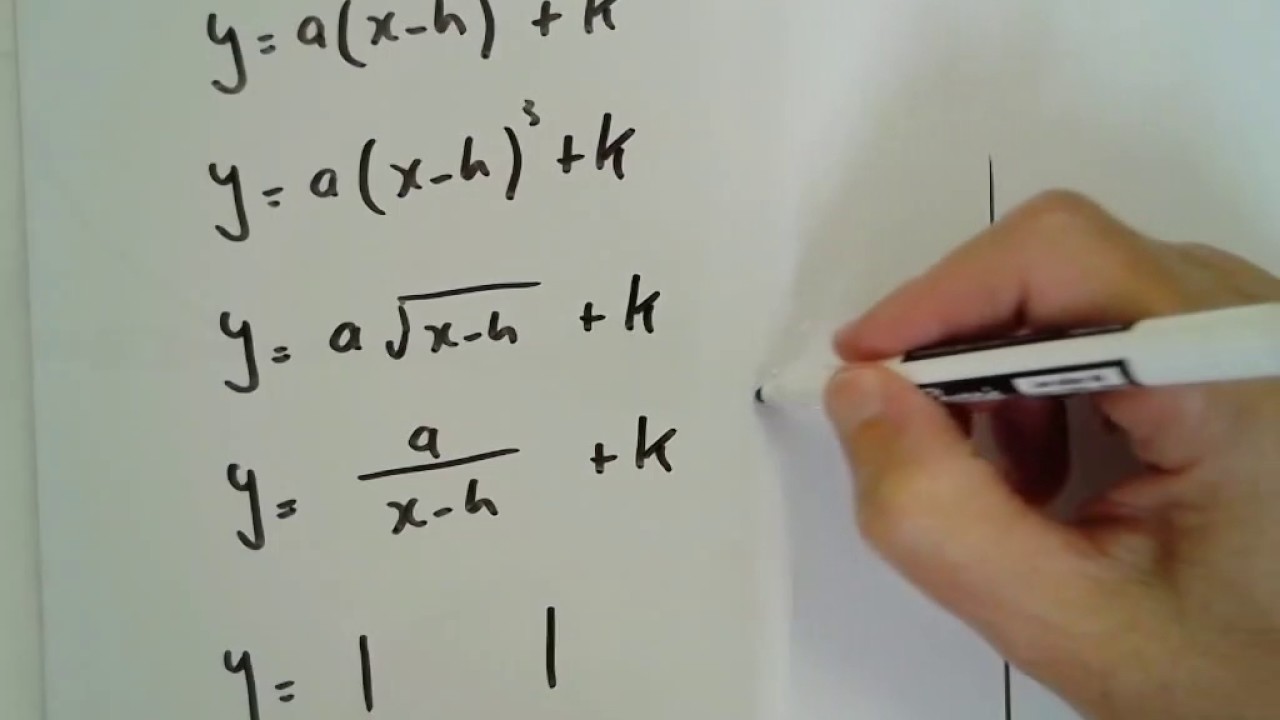 y = a(x-h) + k
y = a(x-h)³ + k
y = a√(x-h) + k
y = a/(x-h) + k
y = | |